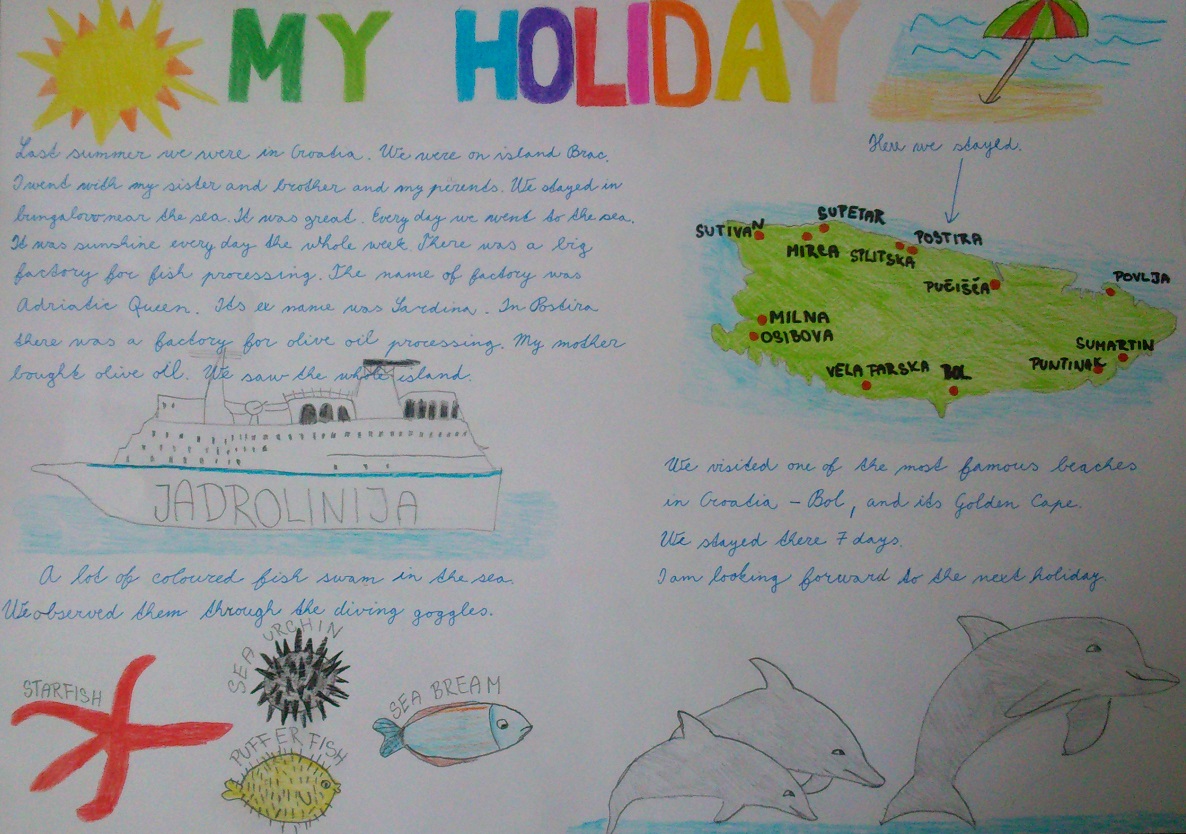 MY HOLIDAY
Last summer we were in Croatia. We were on island Brac.
I went with my sister and brother and my perents. We stayed in
bungalow near the sea. It was great. Every day we went to the sea.
It was sunshine every day the whole week. There was a big
factory for fish processing. The name of factory was
Adriatic Queen. Its ee name was Sardina. In Postira
there was a factory for olive oil processing. My mother
bought olive oil. We saw the whole island.
JADROLINIJA
A lot of coloured fish swam in the sea.
We observed them through the diving goggles.
STARFISH
SEA URCHIN
PUFFERFISH
SEA BREAM
Here we stayed.
SUTIVAN
SUPETAR
MIRCA
SPLITSKA
POSTIRA
PUČIŠĆA
POVLJA
MILNA
OSIBOVA
SUMARTIN
PUNTINAK
VELA FARSKA
BOL
We visited one of the most famous beaches
in Croatia - Bol, and its Golden Cape.
We stayed there 7 days.
I am looking forward to the next holiday.